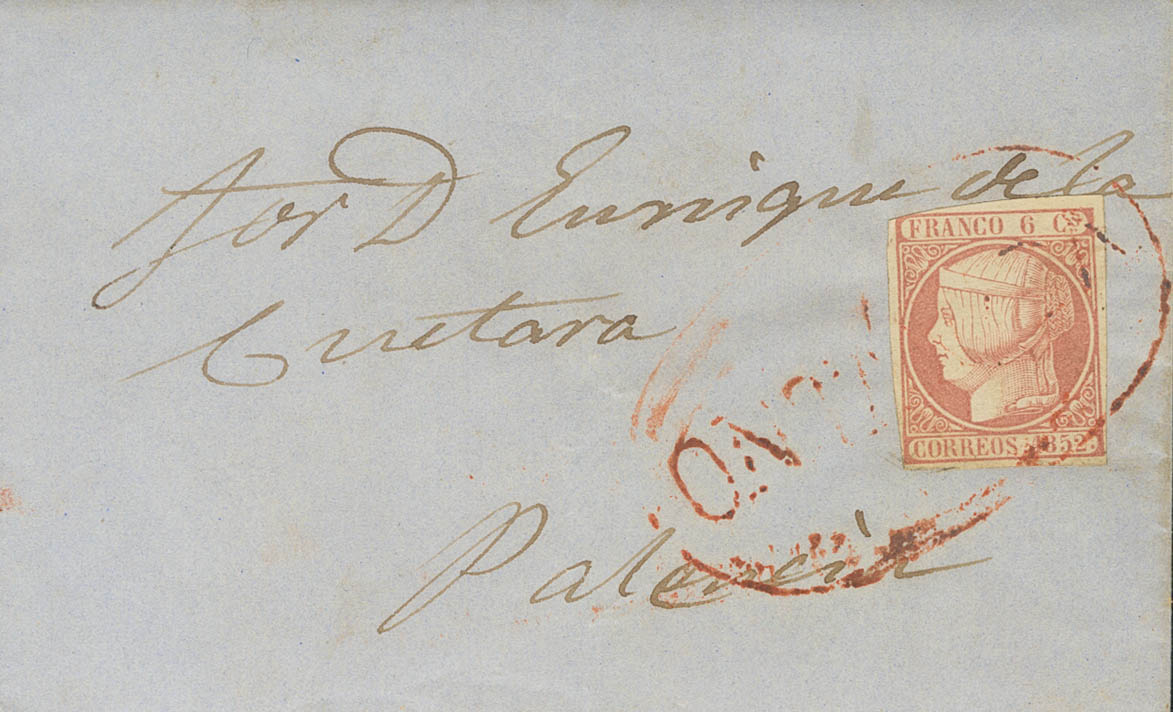 Sor D Enrique de la
FRANCO 6 Cs
Cuetara
CORREOS 1852
Palencia